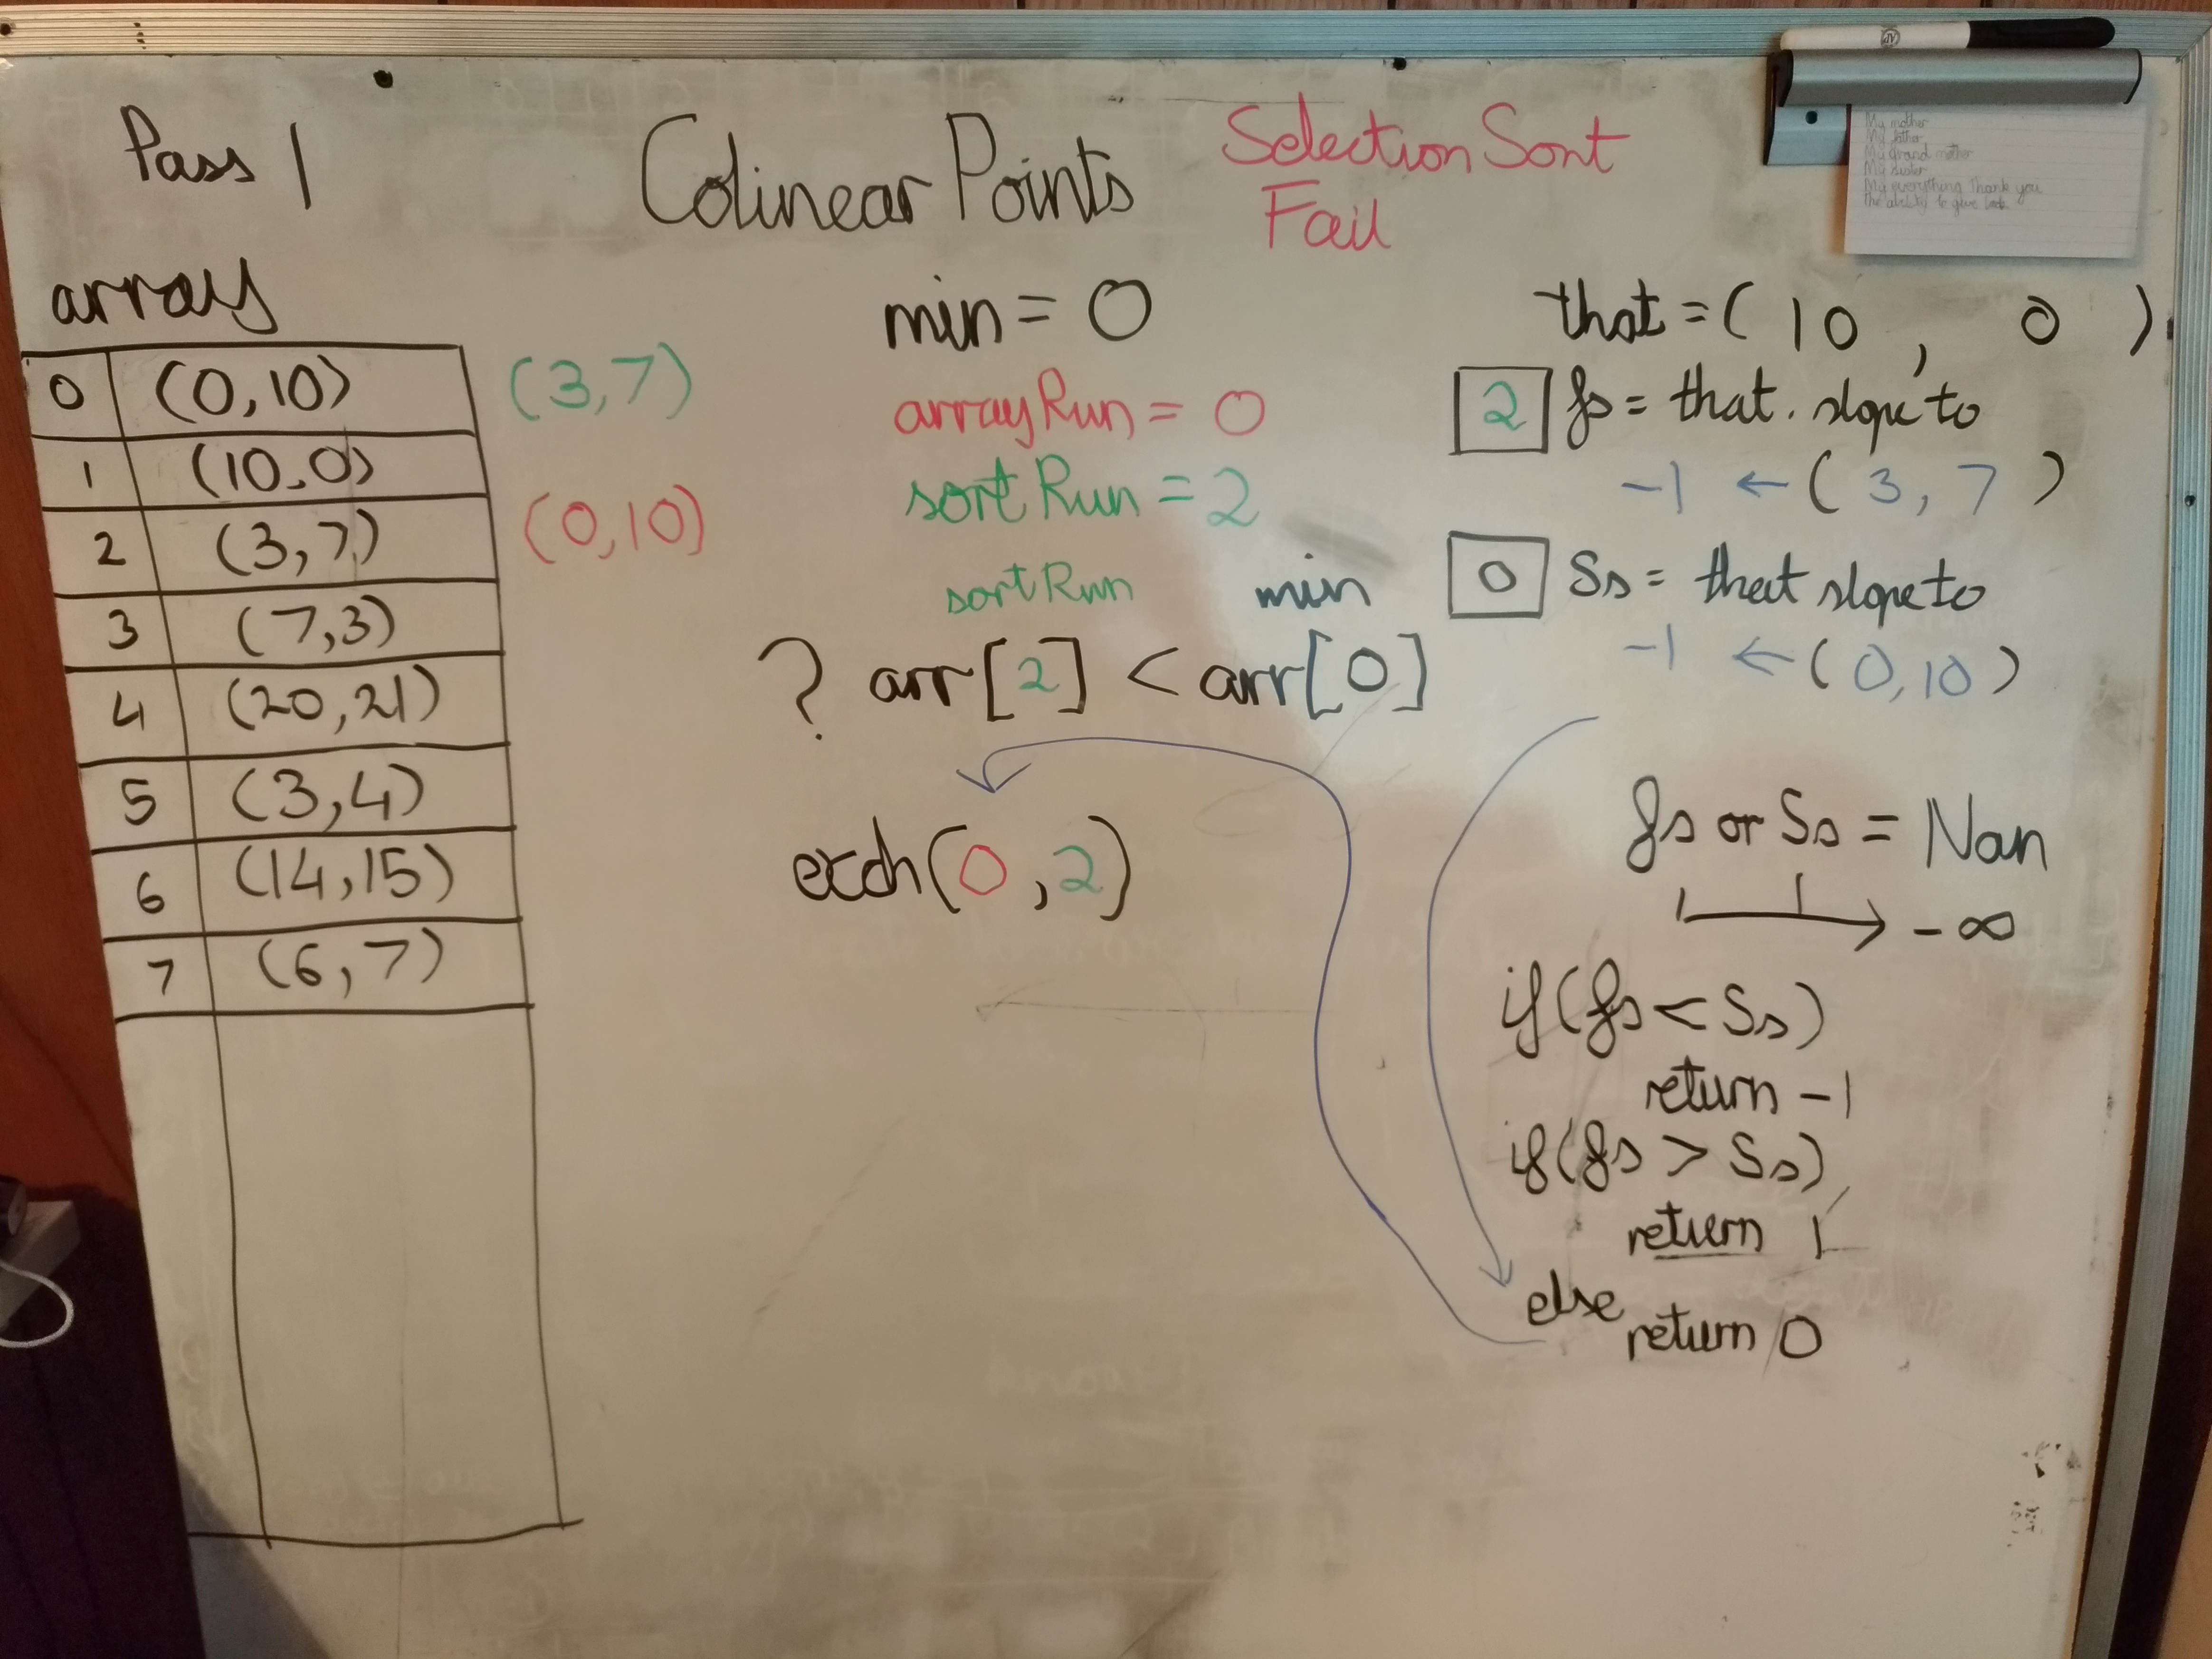 Pass 1
Colinear Points
Selection Sort
Fail
My mother
My father
My grand mother
My sister
My everything thank you
The ability to give back
array
0 (0,10) (3,7)
1 (10,0)
2 (3,7) (0,10)
3 (7,3)
4 (20,21)
5 (3,4)
6 (14,15)
7 (6,7)
min = 0
arrayRun = 0
sortRun = 2
sortRun min
? arr[2] < arr[0]
exch(0,2)
that = ( 10 , 0 )
2 fs = that. slope to
-1 ← ( 3, 7 )
0 Ss = that slope to
-1 ← ( 0, 10 )
fs or Ss = Nan
→ - ∞
if (fs < Ss)
return -1
if (fs > Ss)
return 1
else
return 0